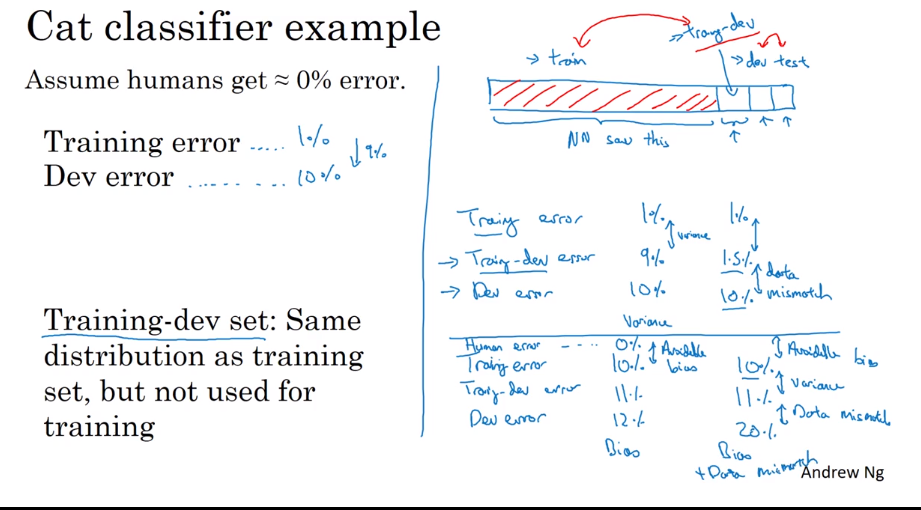 Cat classifier example
Assume humans get ≈ 0% error.
Training error ..... 1%
↓ 9%
Dev error ........ 10%
Training-dev set: Same
distribution as training
set, but not used for
training
→ train
→ traing-dev
→ dev test
NN saw this
Traing error 1% 1%
variance
→ Traing-dev error 9% 1.5%
data
→ Dev error 10% 10% mismatch
Variance
Human error ---- 0% Avoidable bias
Traing error 10% 10%
Avoidable bias
Traing-dev error 11% 11%
Variance
Dev error 12% 20%
Data mismatch
Bias Bias
+ Data mismatch
Andrew Ng